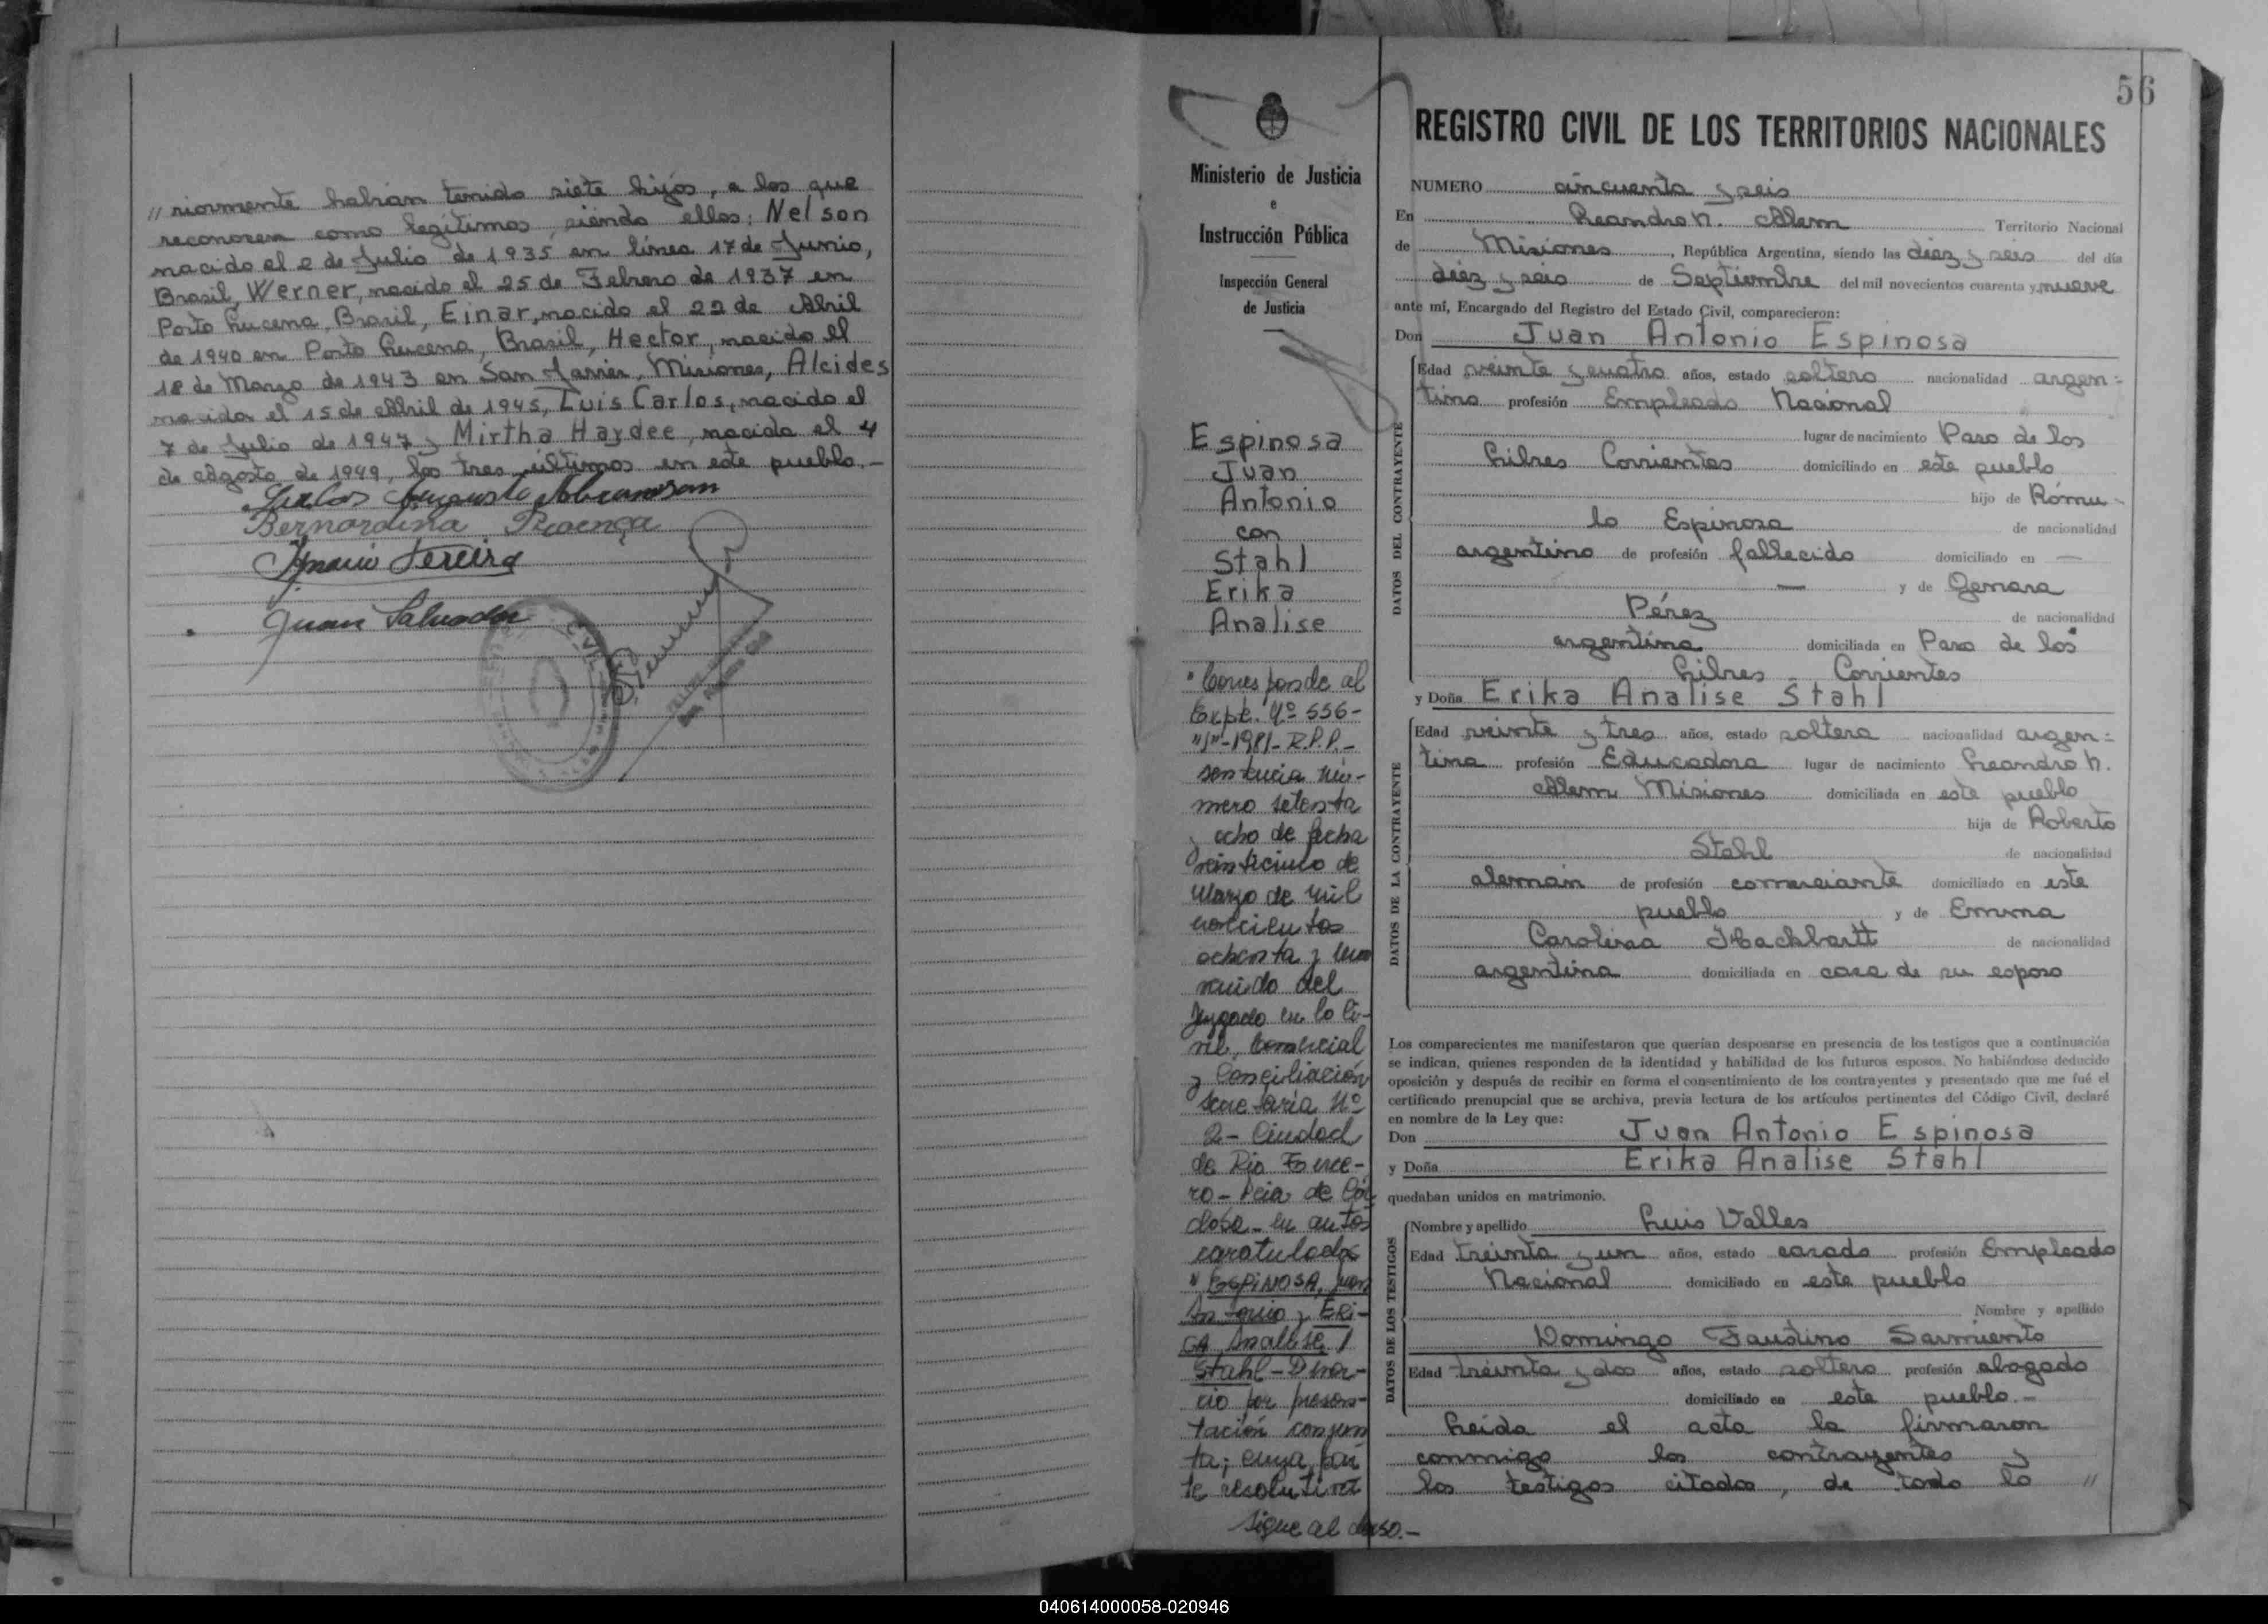 // riormente habian tenido siete hijos, a los que
reconocen como legítimos, siendo ellos: Nelson
nacido el 2 de Julio de 1935 en linea 17 de Junio,
Brasil, Werner, nacido el 25 de Febrero de 1937 en
Porto Lucena, Brasil, Einar, nacido el 22 de Abril
de 1940 en Porto Lucena, Brasil, Hector, nacido el
18 de Marzo de 1943 en San Javier, Misiones, Alcides
nacido el 15 de Abril de 1945, Luis Carlos, nacido el
7 de Julio de 1947 y Mirtha Haydee, nacida el 4
de Agosto de 1949, los tres últimos en este pueblo.-
Carlos Augusto Abramson
Bernardina Proença
Pereira
Juan Salvador
56
Ministerio de Justicia
e
Instrucción Pública
Inspección General
de Justicia
Espinosa
Juan
Antonio
con
Stahl
Erika
Analise
Corresponde al
Expte. Nº 556-
"J"-1981- R.P.P.-
sentencia nú-
mero setenta
y ocho de fecha
veinticinco de
Marzo de mil
novecientos
ochenta y uno
venido del
Juzgado en lo Ci-
vil, Comercial
y Conciliación
Secretaría Nº
2- Ciudad
de Rio Terce-
ro- Pcia. de Cór-
doba- en autos
caratulados
"ESPINOSA, Juan
Antonio y ERI-
CA Analise
Stahl - Divor-
cio por presen-
tación conjun
ta; cuya par
te resolutiva
sigue al dorso.-
REGISTRO CIVIL DE LOS TERRITORIOS NACIONALES
NUMERO cincuenta y seis
En Leandro N. Alem Territorio Nacional
de Misiones, República Argentina, siendo las diez y seis del día
diez y seis de Septiembre del mil novecientos cuarenta y nueve
ante mí, Encargado del Registro del Estado Civil, comparecieron:
Don Juan Antonio Espinosa
DATOS DEL CONTRAYENTE
Edad veinte y cuatro años, estado soltero nacionalidad argen-
tina profesión Empleado Nacional
lugar de nacimiento Paso de los
Libres Corrientes domiciliado en este pueblo
hijo de Rómu-
lo Espinosa de nacionalidad
argentino de profesión fallecido domiciliado en —
— y de Genara
Pérez de nacionalidad
argentina domiciliada en Paso de los
Libres Corrientes
y Doña Erika Analise Stahl
DATOS DE LA CONTRAYENTE
Edad veinte y tres años, estado soltera nacionalidad argen-
tina profesión Educadora lugar de nacimiento Leandro N.
Alem Misiones domiciliada en este pueblo
hija de Roberto
Stahl de nacionalidad
alemán de profesión comerciante domiciliado en este
pueblo y de Emma
Carolina Hackbartt de nacionalidad
argentina domiciliada en casa de su esposo
Los comparecientes me manifestaron que querían desposarse en presencia de los testigos que a continuación
se indican, quienes responden de la identidad y habilidad de los futuros esposos. No habiéndose deducido
oposición y después de recibir en forma el consentimiento de los contrayentes y presentado que me fué el
certificado prenupcial que se archiva, previa lectura de los artículos pertinentes del Código Civil, declaré
en nombre de la Ley que:
Don Juan Antonio Espinosa
y Doña Erika Analise Stahl
quedaban unidos en matrimonio.
DATOS DE LOS TESTIGOS
Nombre y apellido Luis Valles
Edad treinta y un años, estado casado profesión Empleado
Nacional domiciliado en este pueblo
Nombre y apellido
Domingo Faustino Sarmiento
Edad treinta y dos años, estado soltero profesión abogado
domiciliado en este pueblo.-
Leida el acta la firmaron
conmigo los contrayentes y
los testigos citados, de todo lo //
040614000058-020946